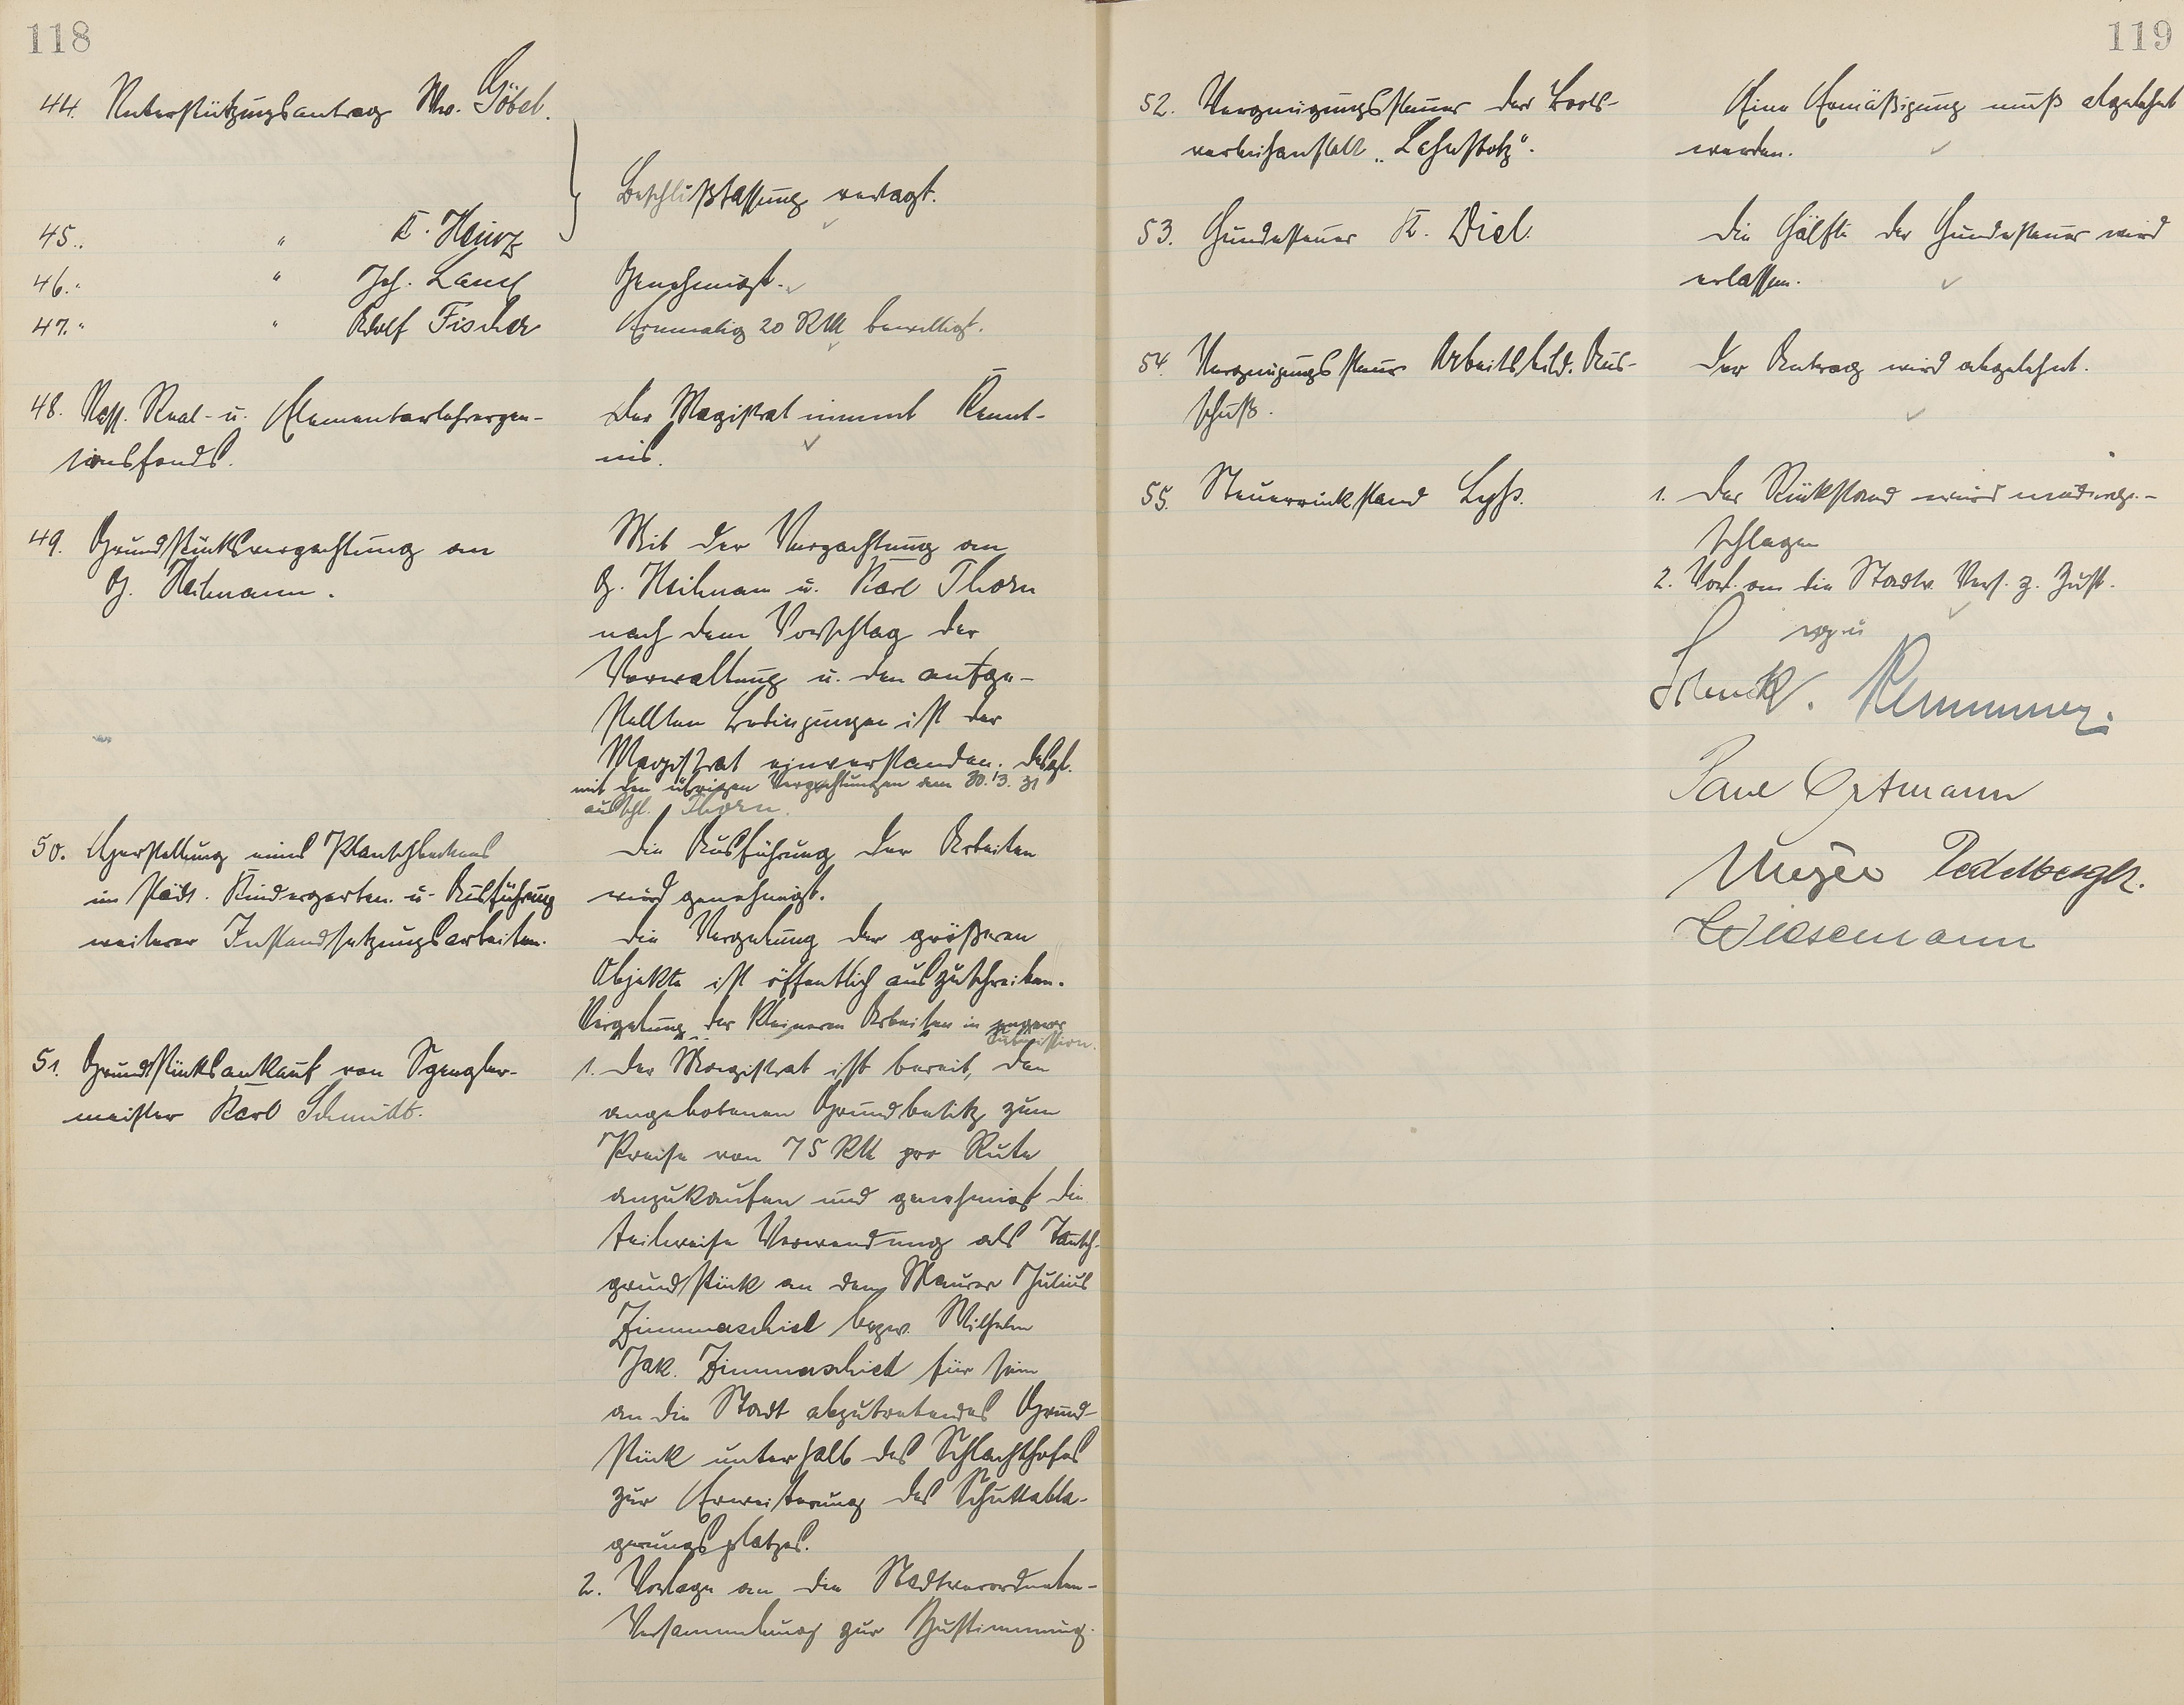 118
44. Unterstützungsantrag Ww. Göbel.
45. " " K. Heinz
Beschlußfassung vertagt.
46. " " Joh. Lauf
Genehmigt.
47. " " Adolf Fischer
Einmalig 20 RM bewilligt.
48. Nass. Real- u. Elementarlehrerpen-
sionsfonds.
Der Magistrat nimmt Kennt-
nis.
49. Grundstücksverpachtung an
G. Heilmann.
Mit der Verpachtung an
G. Heilmann u. Karl Thorn
nach dem Vorschlag der
Verwaltung u. den aufge-
stellten Bedingungen ist der
Magistrat einverstanden. Desgl.
mit den übrigen Verpachtungen vom 30.3.31
ausschl. Thorn.
50. Herstellung eines Planschbeckens
im städt. Kindergarten u. Ausführung
weiterer Instandsetzungsarbeiten.
Die Ausführung der Arbeiten
wird genehmigt.
Die Vergebung der größeren
Objekte ist öffentlich auszuschreiben.
Vergebung der kleineren Arbeiten in engerer
Submission.
51. Grundstücksankauf von Spengler-
meister Karl Schmidt.
1. Der Magistrat ist bereit, den
angebotenen Grundbesitz zum
Preise von 75 RM pro Rute
anzukaufen und genehmigt die
teilweise Verwendung als Tausch-
grundstück an den Maurer Julius
Zimmerschied bezw. Wilhelm
Jak. Zimmerschied für sein
an die Stadt abzutretendes Grund-
stück unterhalb des Schlachthofes
zur Erweiterung des Schuttabla-
gerungsplatzes.
2. Vorlage an die Stadtverordneten-
Versammlung zur Zustimmung.
119
52. Vergnügungssteuer der Boots-
verleihanstalt "Lahnstolz".
Eine Ermäßigung muß abgelehnt
werden.
53. Hundesteuer K. Diel.
Die Hälfte der Hundesteuer wird
erlassen.
54. Vergnügungssteuer Arbeitsbild. Aus-
schuß.
Der Antrag wird abgelehnt.
55. Steuerrückstand Lyß.
1. Der Rückstand wird niederge-
schlagen
2. Vorl. an die Stadtv. Vers. z. Zust.
v g u
Paul Ortmann
Meyer
Wiesemann